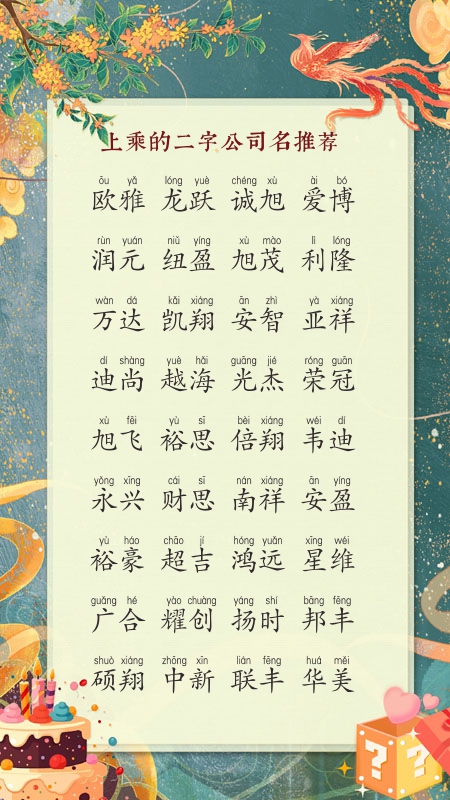 上乘的二字公司名推荐
ōu yǎ lóng yuè chéng xù ài bó
欧雅 龙跃 诚旭 爱博
rùn yuán niǔ yíng xù mào lì lóng
润元 纽盈 旭茂 利隆
wàn dá kǎi xiáng ān zhì yà xiáng
万达 凯翔 安智 亚祥
dí shàng yuè hǎi guāng jié róng guān
迪尚 越海 光杰 荣冠
xù fēi yù sī bèi xiáng wéi dí
旭飞 裕思 倍翔 韦迪
yǒng xīng cái sī nán xiáng ān yíng
永兴 财思 南祥 安盈
yù háo chāo jí hóng yuǎn xīng wéi
裕豪 超吉 鸿远 星维
guǎng hé yào chuàng yáng shí bāng fēng
广合 耀创 扬时 邦丰
shuò xiáng zhōng xīn lián fēng huá měi
硕翔 中新 联丰 华美
? ?